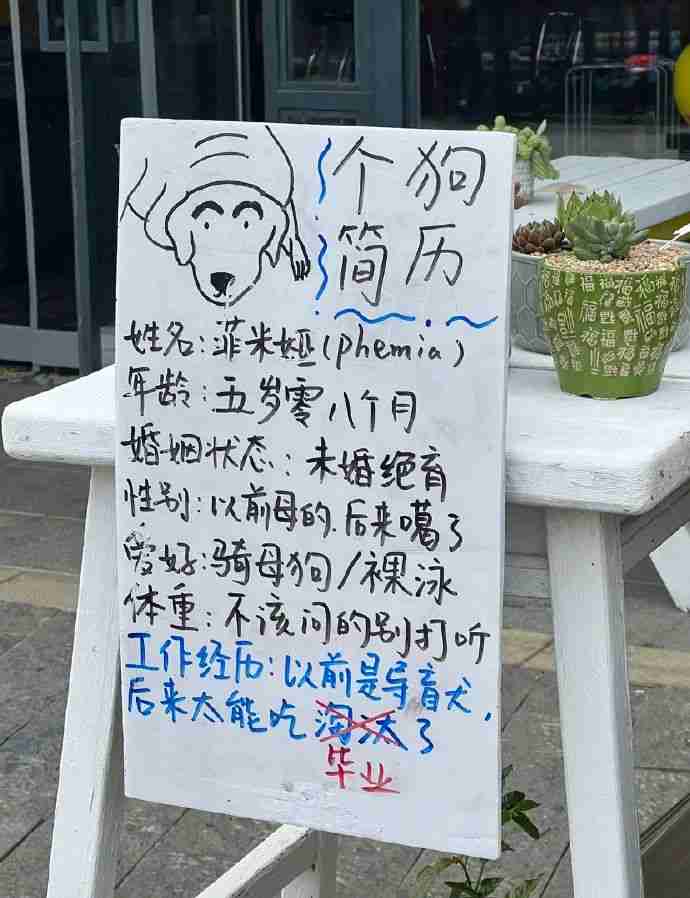 个狗
简历
姓名:菲米娅(phemia)
年龄:五岁零八个月
婚姻状态:未婚绝育
性别:以前母的.后来噶了
爱好:骑母狗/裸泳
体重:不该问的别打听
工作经历:以前是导盲犬,
后来太能吃淘汰了
毕业
福福福